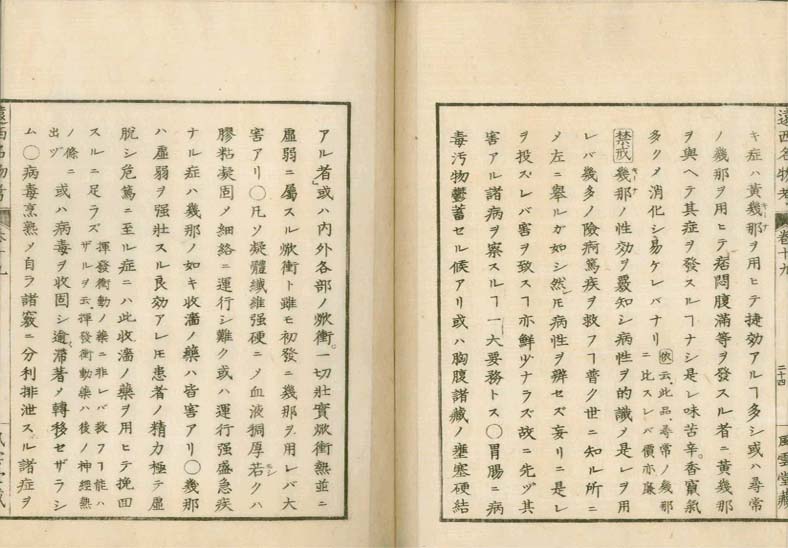 キ症ハ黄幾那ヲ用ヒテ捷効アルヿ多シ或ハ尋常
ノ幾那ヲ用ヒテ痞悶腹滿等ヲ發スル者ニ黄幾那
ヲ與ヘテ其症ヲ發スルヿナシ是レ味苦辛香竄氣
多クメ消化シ易ケレバナリ 依云此品尋常ノ幾那ニ比スレバ價亦廉
禁戒 幾那ノ性効ヲ覈知シ病性ヲ的識メ是レヲ用
レバ幾多ノ險病篤疾ヲ救フヿ普ク世ニ知ル所ニ
メ左ニ舉ルガ如シ然𪜈病性ヲ辨セズ妄リニ是レ
ヲ投ズレバ害ヲ致スヿ亦鮮少ナラズ故ニ先ヅ其
害アル諸病ヲ察スルヿ一大要務トス〇胃腸ニ病
毒汚物鬱蓄セル候アリ或ハ胸腹諸藏ノ壅塞硬結
遠西名物考 卷十九 三十四 風雲堂藏
アル者或ハ内外各部ノ焮衝一切壯實焮衝熱並ニ
虚弱ニ屬スル焮衝ト雖モ初發ニ幾那ヲ用レバ大
害アリ〇凡ソ凝體纎維强硬ニメ血液稠厚若クハ
膠粘凝固メ細絡ニ運行シ難ク或ハ運行强盛急疾
ナル症ハ幾那ノ如キ收濇ノ藥ハ皆害アリ〇幾那
ハ虚弱ヲ强壯スル良効アレ𪜈患者ノ精力極テ虚
脱シ危篤ニ至ル症ニハ此收濇ノ藥ヲ用ヒテ挽回
スルニ足ラズ 揮發衝動ノ藥ニ非レバ救フヿ能ハザルヲ云揮發衝動藥ハ後ノ神經熱
ノ條ニ出ヅ 或ハ病毒ヲ收固シ遒滯著メ轉移セザラシ
ム〇病毒烹熟メ自ラ諸竅ニ分利排泄スル諸症ヲ